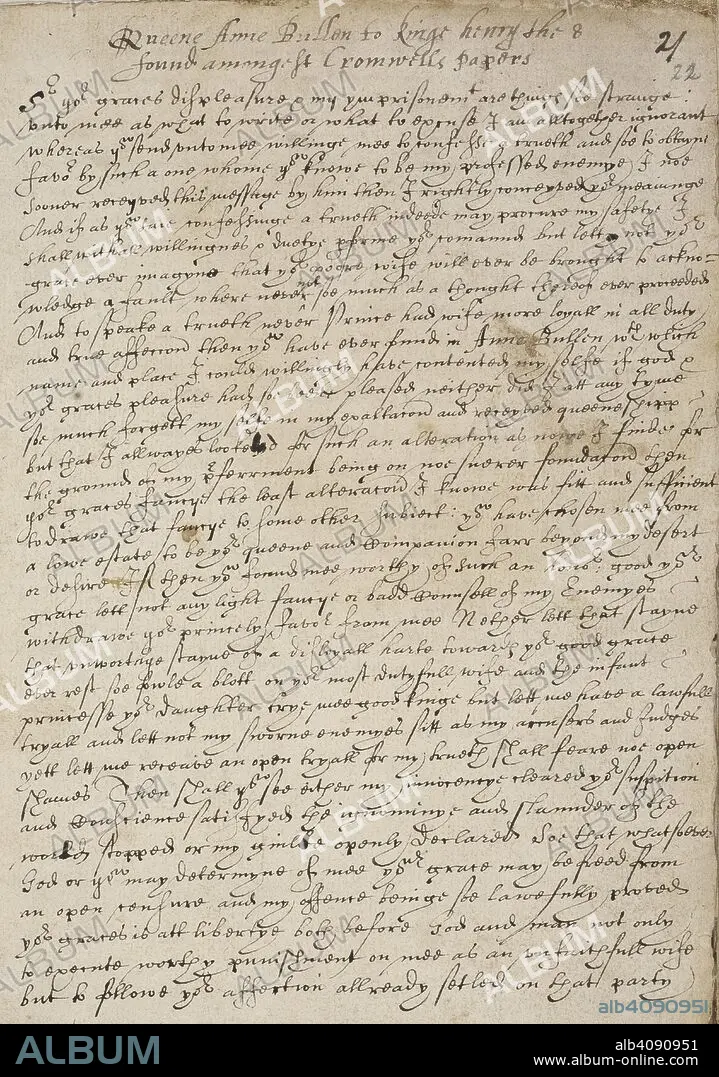 Queene Anne Bullen to kinge henry the 8
found amongest Cromwells papers
21
22
Sr yor graces displeasure & my ymprisonemt are things so strange
unto mee as what to write or what to excuse I am alltogether ignorant
whereas you send unto mee willinge mee to confesse a trueth and soe to obteine
favor by such a one whome you knowe to be my professed enemye I noe
sooner receyved this message by him then I rightly conceyved yor meaninge
And if as you saie confessinge a trueth indeede may procure my safetye I
shall with all willingnes & duetye pforme yor comaund but lett not yor
grace ever imagyne that yor poore wife will ever be brought to ackno=
wledge a fault where never not soe much as a thought thereof ever proceeded
And to speake a trueth never Prince had wife more loyall in all duty
and true affeccon then you have ever fownd in Anne Bullen wth which
name and place I could willingly have contented my selfe if god &
yor graces pleasure had soe been pleased neither did I att any tyme
soe much forgett my selfe in my exaltacon and receyved queeneshipp
but that I allwayes looked for such an alteration as nowe I finde for
the ground of my pferrment being on noe suerer foundacon then
yor graces fancye the least alteracon I knowe was fitt and sufficient
to drawe that fancye to some other subiect: you have chosen mee from
a lowe estate to be yor queene and Companion farr beyond my desert
or desire If then you found mee worthy of such an honor: good yor
grace lett not any light fancye or badd Counsell of my Enemyes
withdrawe yor princely favor from mee Nether lett that stayne
that unworthye stayne of a disloyall harte towards yor good grace
ever rest soe fowle a blott on yor most dutyfull wife and the infant
princesse yor daughter trye mee good kinge but lett me have a lawfull
tryall and lett not my sworne enemyes sitt as my accusers and Judges
yett lett me receave an open tryall for my trueth shall feare noe open
shames Then shall you see either my innocencye cleared yor suspition
and Conscience satisfyed the ignominye and slaunder of the
world stopped or my guilte openly declared Soe that whatsoever
God or you may determyne of mee yor grace may be freed from
an open censure and my offence beinge soe lawefully proved
yor graces is att libertye both before God and man not only
to execute worthy punishment on mee as an unfaithfull wife
but to followe yor affection allready setled on that party
ALBUM
alb4090951
ALBUM
alb4090951
www.album-online.com